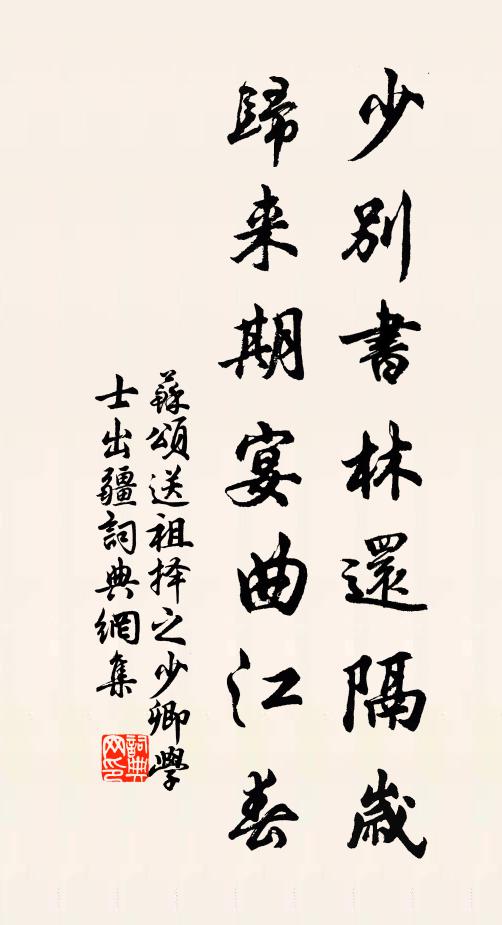 少別書林還隔歲
歸来期宴曲江春
蘇頌送祖择之少卿學
士出疆詞典網集
詞典網印